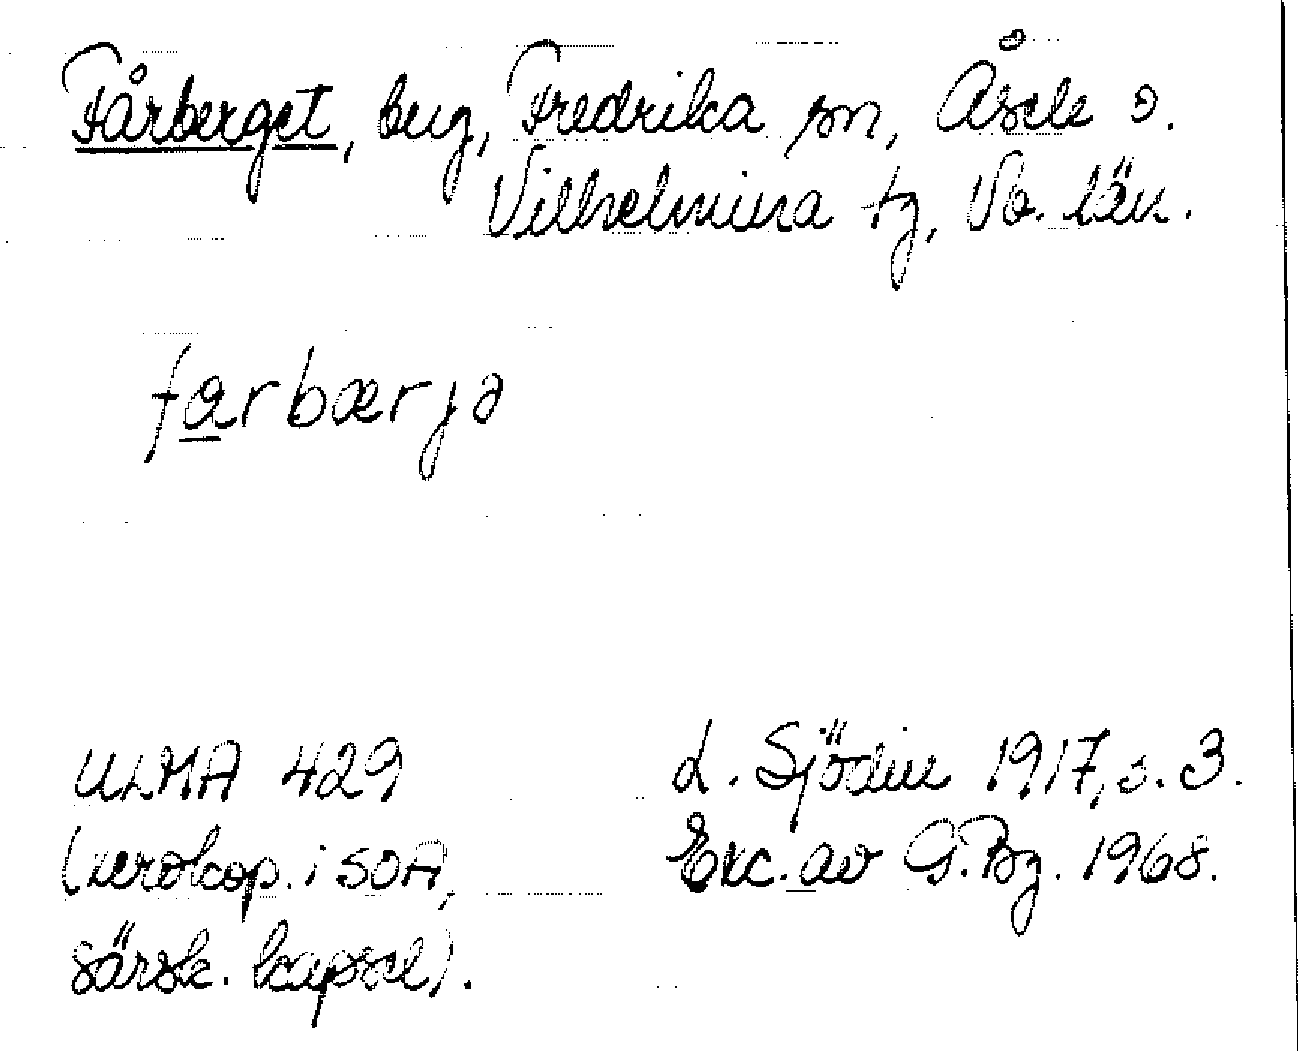 Fårberget, by, Fredrika sn, Åsele o.
Vilhelmina tg, Vb. län.
farbærjə
ULMA 429
(xerokop. i SOA,
särsk. kapsel).
L. Sjödin 1917, s. 3.
Exc. av G. Bg. 1968.